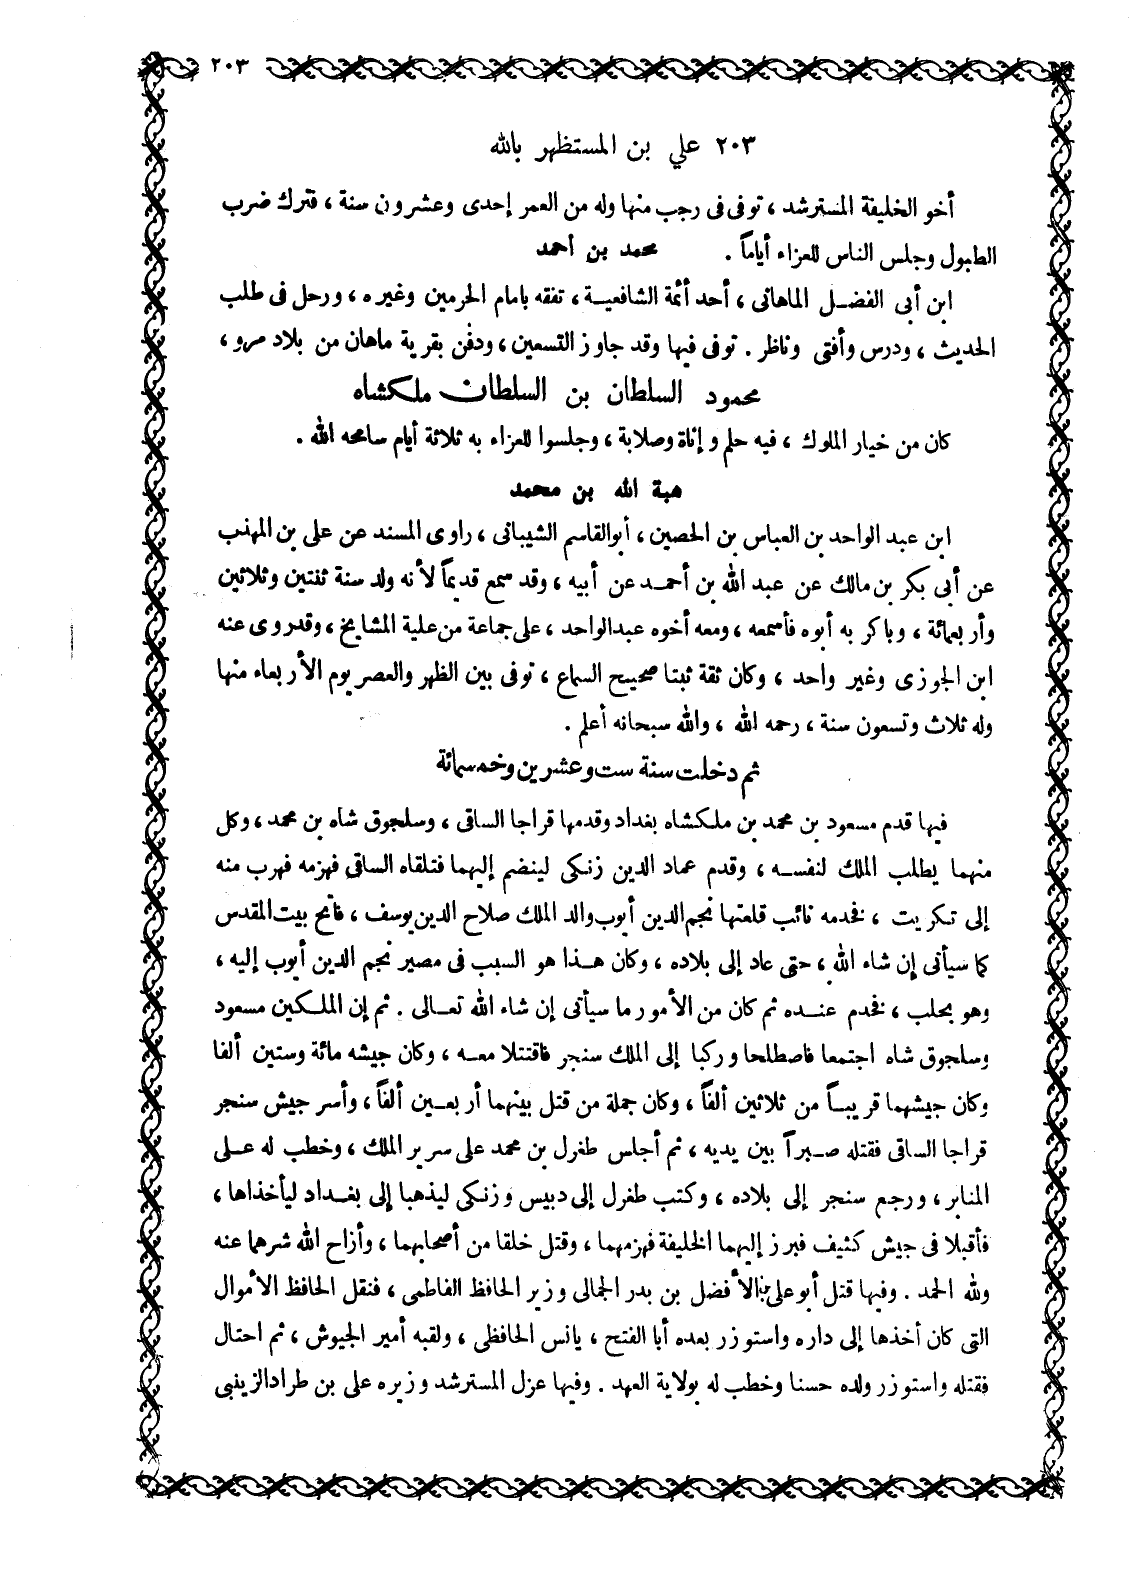 ٢٠٣
٢٠٣ علي بن المستظهر بالله
أخو الخليفة المسترشد ، توفى فى رجب منها وله من العمر إحدى وعشرون سنة ، فترك ضرب
الطبول وجلس الناس للعزاء أياماً . محمد بن أحمد
ابن أبى الفضل الماهانى ، أحد أئمة الشافعية ، تفقه بامام الحرمين وغيره ، ورحل فى طلب
الحديث ، ودرس وأفتى وناظر . توفى فيها وقد جاوز التسعين ، ودفن بقرية ماهان من بلاد مرو ،
محمود السلطان بن السلطان ملكشاه
كان من خيار الملوك ، فيه حلم و إناة وصلابة ، وجلسوا للعزاء به ثلاثة أيام سامحه الله .
هبة الله بن محمد
ابن عبد الواحد بن العباس بن الحصين ، أبو القاسم الشيبانى ، راوى المسند عن على بن المهذب
عن أبى بكر بن مالك عن عبد الله بن أحمد عن أبيه ، وقد سمع قديماً لأنه ولد سنة ثنتين وثلاثين
وأربعمائة ، وباكر به أبوه فأسمعه ، ومعه أخوه عبد الواحد ، على جماعة من علية المشايخ ، وقد روى عنه
ابن الجوزى وغير واحد ، وكان ثقة ثبتا صحيح السماع ، توفى بين الظهر والعصر يوم الأربعاء منها
وله ثلاث وتسعون سنة ، رحمه الله ، والله سبحانه أعلم .
ثم دخلت سنة ست وعشرين وخمسمائة
فيها قدم مسعود بن محمد بن ملكشاه بغداد وقدمها قراجا الساقى ، وسلجوق شاه بن محمد ، وكل
منهما يطلب الملك لنفسه ، وقدم عماد الدين زنكى لينضم إليهما فتلقاه الساقى فهزمه فهرب منه
إلى تكريت ، فخدمه نائب قلعتها نجم الدين أيوب والد الملك صلاح الدين يوسف ، فاتح بيت المقدس
كما سيأتى إن شاء الله ، حتى عاد إلى بلاده ، وكان هذا هو السبب فى مصير نجم الدين أيوب إليه ،
وهو بحلب ، فخدم عنده ثم كان من الأمور ما سيأتى إن شاء الله تعالى . ثم إن الملكين مسعود
وسلجوق شاه اجتمعا فاصطلحا وركبا إلى الملك سنجر فاقتتلا معه ، وكان جيشه مائة وستين ألفا
وكان جيشهما قريباً من ثلاثين ألفاً ، وكان جملة من قتل بينهما أربعين ألفاً ، وأسر جيش سنجر
قراجا الساقى فقتله صبراً بين يديه ، ثم أجلس طغرل بن محمد على سرير الملك ، وخطب له على
المنابر ، ورجع سنجر إلى بلاده ، وكتب طغرل إلى دبيس وزنكى ليذهبا إلى بغداد ليأخذاها ،
فأقبلا فى جيش كثيف فبرز إليهما الخليفة فهزمهما ، وقتل خلقا من أصحابهما ، وأزاح الله شرهما عنه
ولله الحمد . وفيها قتل أبو على بن الأفضل بن بدر الجمالى وزير الحافظ الفاطمى ، فنقل الحافظ الأموال
التى كان أخذها إلى داره واستوزر بعده أبا الفتح ، يانس الحافظى ، ولقبه أمير الجيوش ، ثم احتال
فقتله واستوزر ولده حسنا وخطب له بولاية العهد . وفيها عزل المسترشد وزيره على بن طراد الزينبى